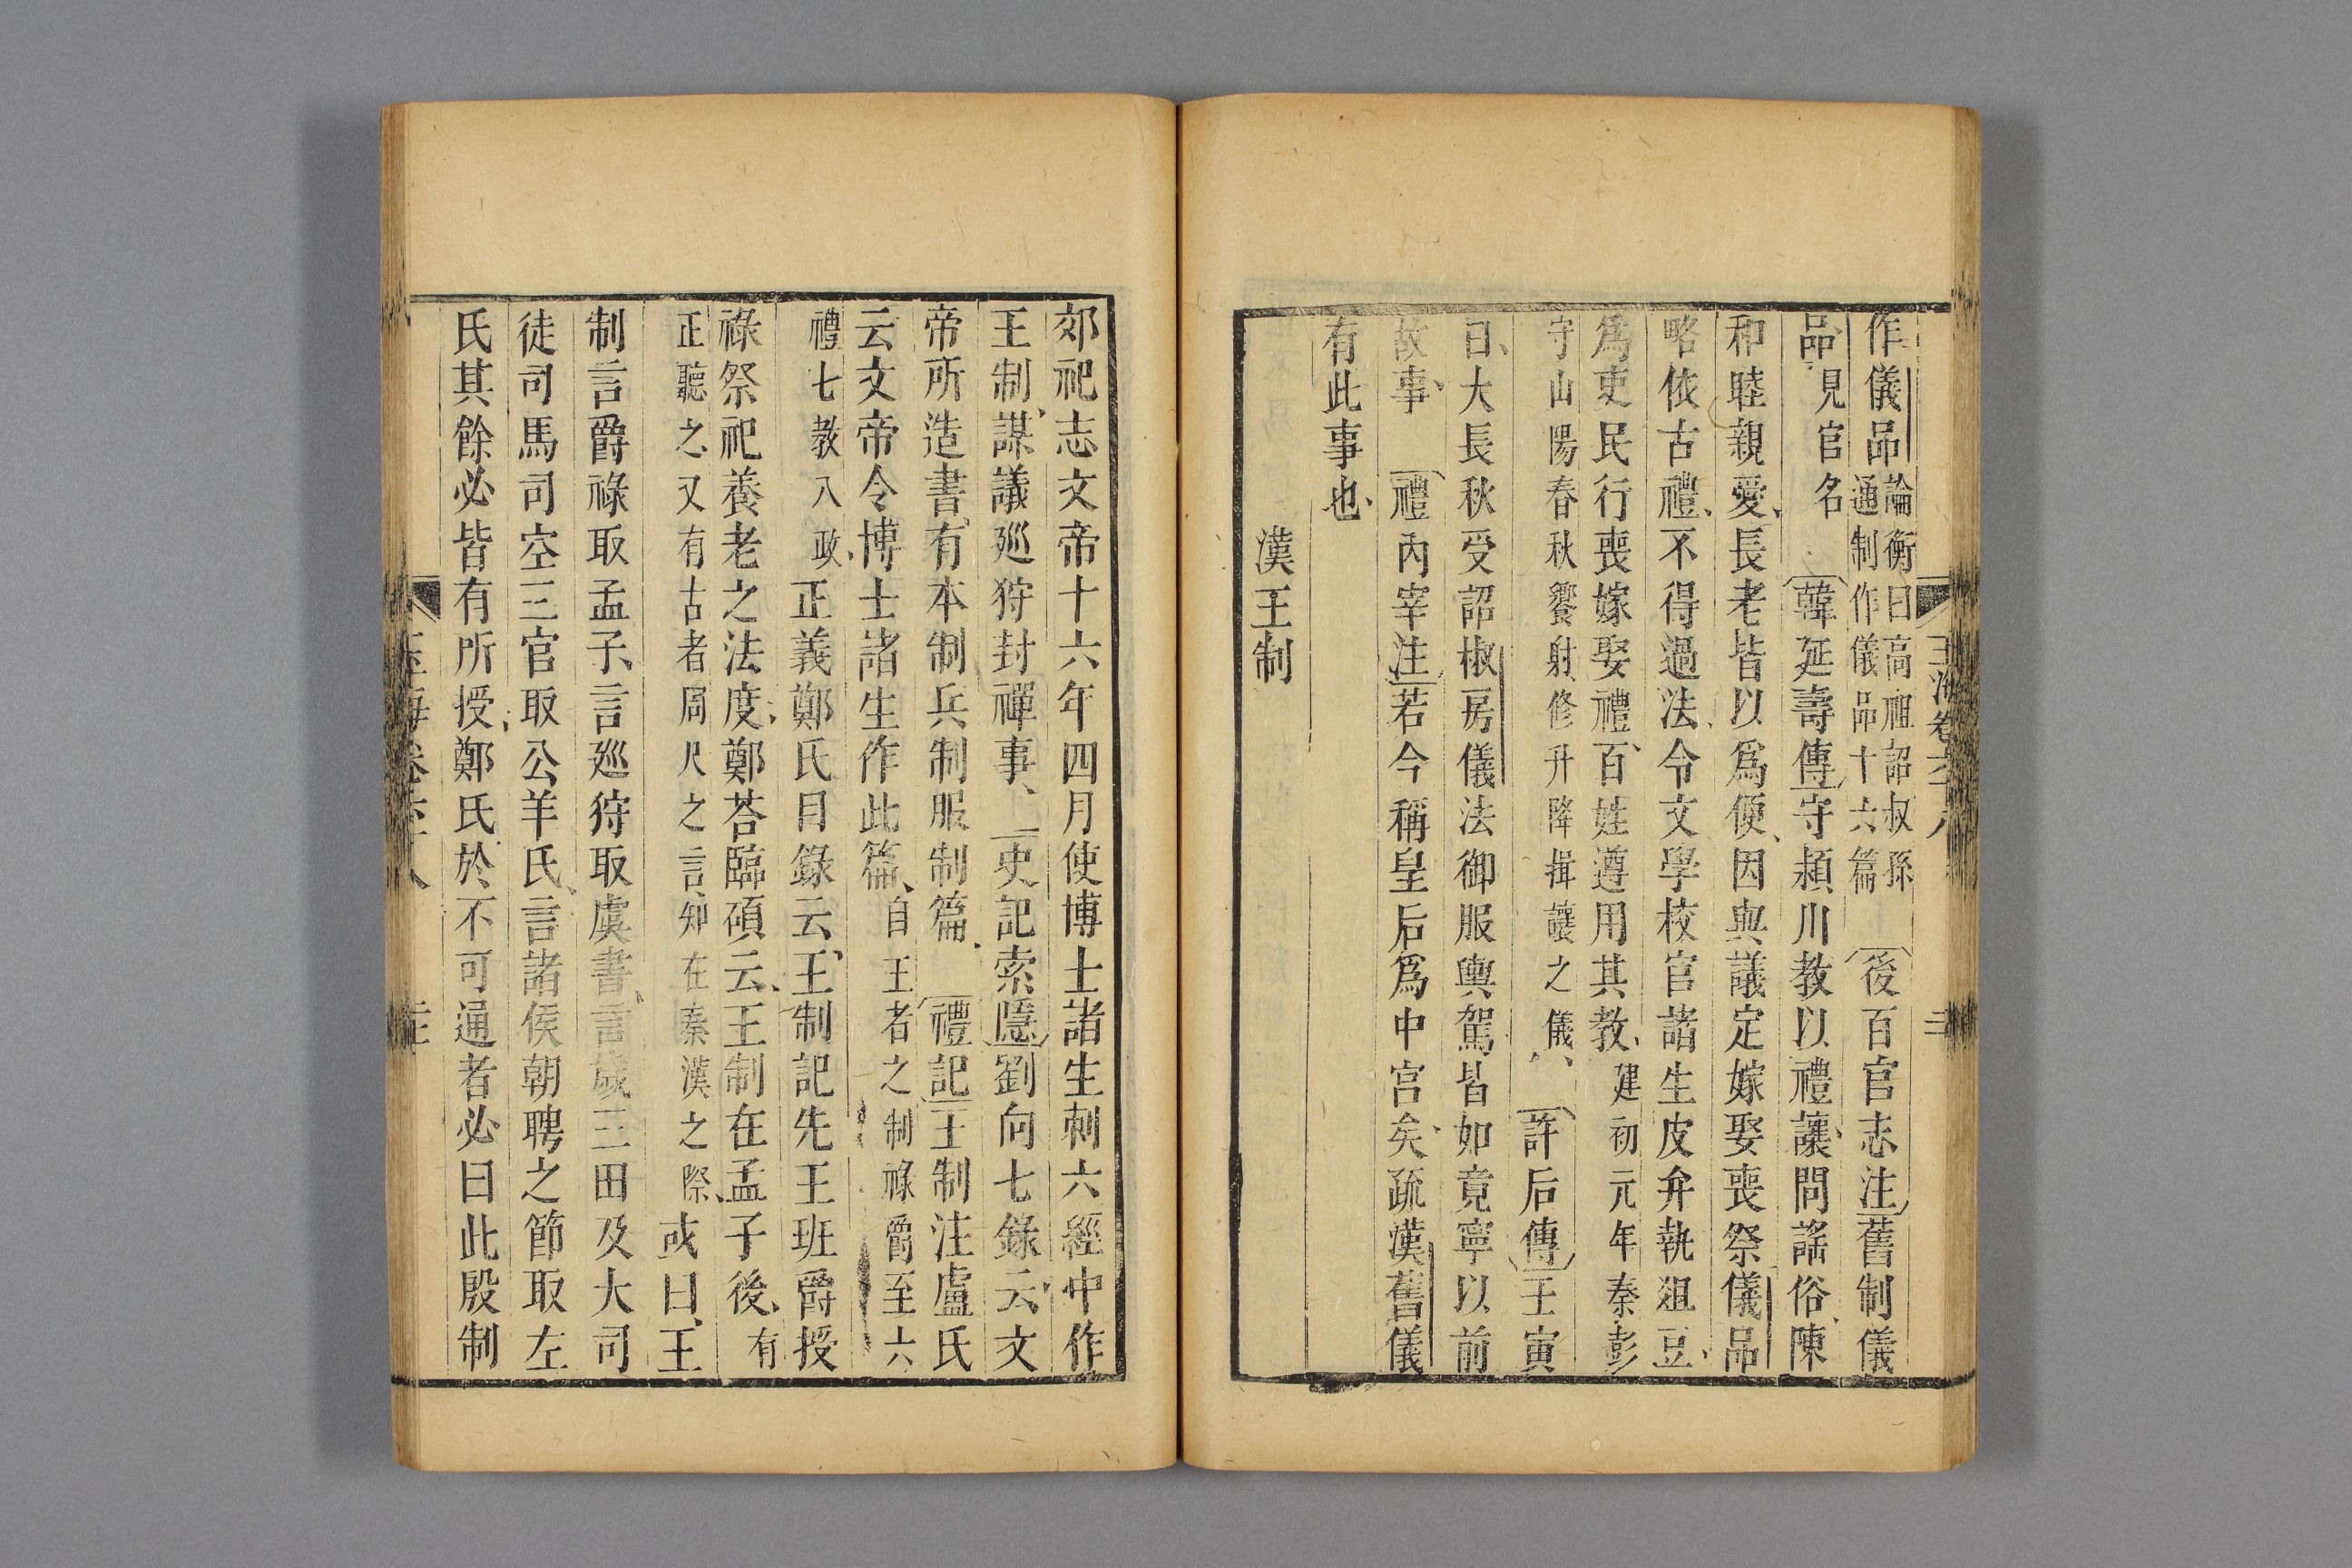 作儀品論衡曰高祖詔叔孫通制作儀品十六篇後百官志注舊制儀
品見官名韓延壽傳守潁川教以禮讓問謠俗陳
和睦親愛長老皆以為便因與議定嫁娶喪祭儀品
略依古禮不得過法令文學校官諸生皮弁執俎豆
為吏民行喪嫁娶禮百姓遵用其教建初元年秦彭
守山陽春秋饗射修升降揖讓之儀許后傳王寅
曰大長秋受詔椒房儀法御服輿駕皆如竟寧以前
故事禮內宰注若今稱皇后為中宮矣疏漢舊儀
有此事也
漢王制
郊祀志文帝十六年四月使博士諸生刺六經中作
王制謀議廵狩封禪事史記索隱劉向七錄云文
帝所造書有本制兵制服制篇禮記王制注盧氏
云文帝令博士諸生作此篇自王者之制祿爵至六
禮七教八政正義鄭氏目錄云王制記先王班爵授
祿祭祀養老之法度鄭荅臨碩云王制在孟子後有
正聽之又有古者周尺之言知在秦漢之際或曰王
制言爵祿取孟子言廵狩取虞書言歲三田及大司
徒司馬司空三官取公羊氏言諸侯朝聘之節取左
氏其餘必皆有所授鄭氏於不可通者必曰此殷制